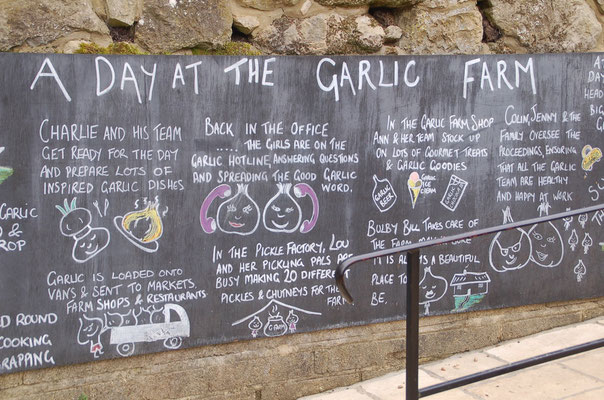 A DAY AT THE GARLIC FARM
GARLIC
&
ROP
D ROUND
COOKING
RAPANG
CHARLIE AND HIS TEAM
GET READY FOR THE DAY
AND PREPARE LOTS OF
INSPIRED GARLIC DISHES
GARLIC IS LOADED ONTO
VANS & SENT TO MARKETS,
FARM SHOPS & RESTAURANTS
BACK IN THE OFFICE
.... THE GIRLS ARE ON THE
GARLIC HOTLINE, ANSWERING QUESTIONS
AND SPREADING THE GOOD GARLIC
WORD.
IN THE PICKLE FACTORY, LOU
AND HER PICKLING PALS ARE
BUSY MAKING 20 DIFFERE
PICKLES & CHUTNEYS FOR THE
FARM
IN THE GARLIC FARM SHOP
ANN & HER TEAM STOCK UP
ON LOTS OF GOURMET TREATS
& GARLIC GOODIES
GARLIC
BEER
GARLIC
ICE
CREAM
BULBY BILL TAKES CARE OF
THE FARM
IT IS ALWAYS A BEAUTIFUL
PLACE TO
BE.
COLIN, JENNY & THE
FAMILY OVERSEE THE
PROCEEDINGS, ENSURING
THAT ALL THE GARLIC
TEAM ARE HEALTHY
AND HAPPY AT WORK